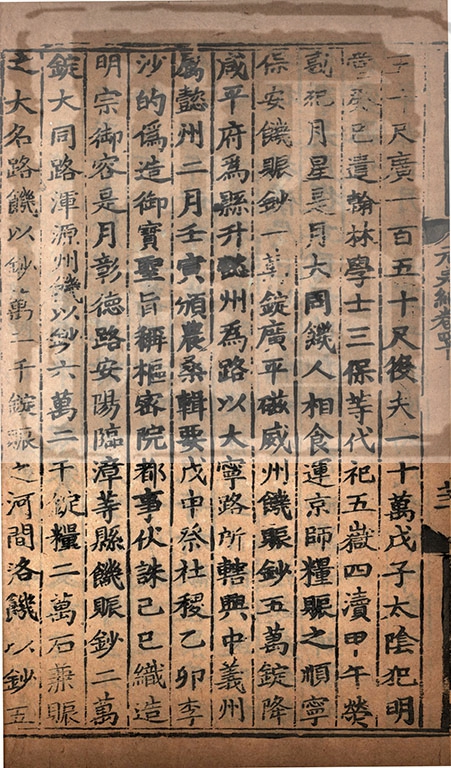 五十尺廣一百五十尺後夫一十萬戊子太陰犯明
堂癸巳遣翰林學士三保等代祀五嶽四瀆甲午熒
惑犯月星是月大同饑人相食運京師糧賑之順寧
保安饑賑鈔一萬錠廣平磁威州饑賑鈔五萬錠降
咸平府爲縣升懿州爲路以大寧路所轄興中義州
屬懿州二月壬寅頒農桑輯要戊申祭社稷乙卯李
沙的僞造御寶聖旨稱樞密院都事伏誅己巳織造
明宗御容是月彰德路安陽臨漳等縣饑賑鈔二萬
錠大同路渾源州饑以鈔六萬二千錠糧二萬石兼賑
之大名路饑以鈔萬二千錠賑之河間洛饑以鈔五